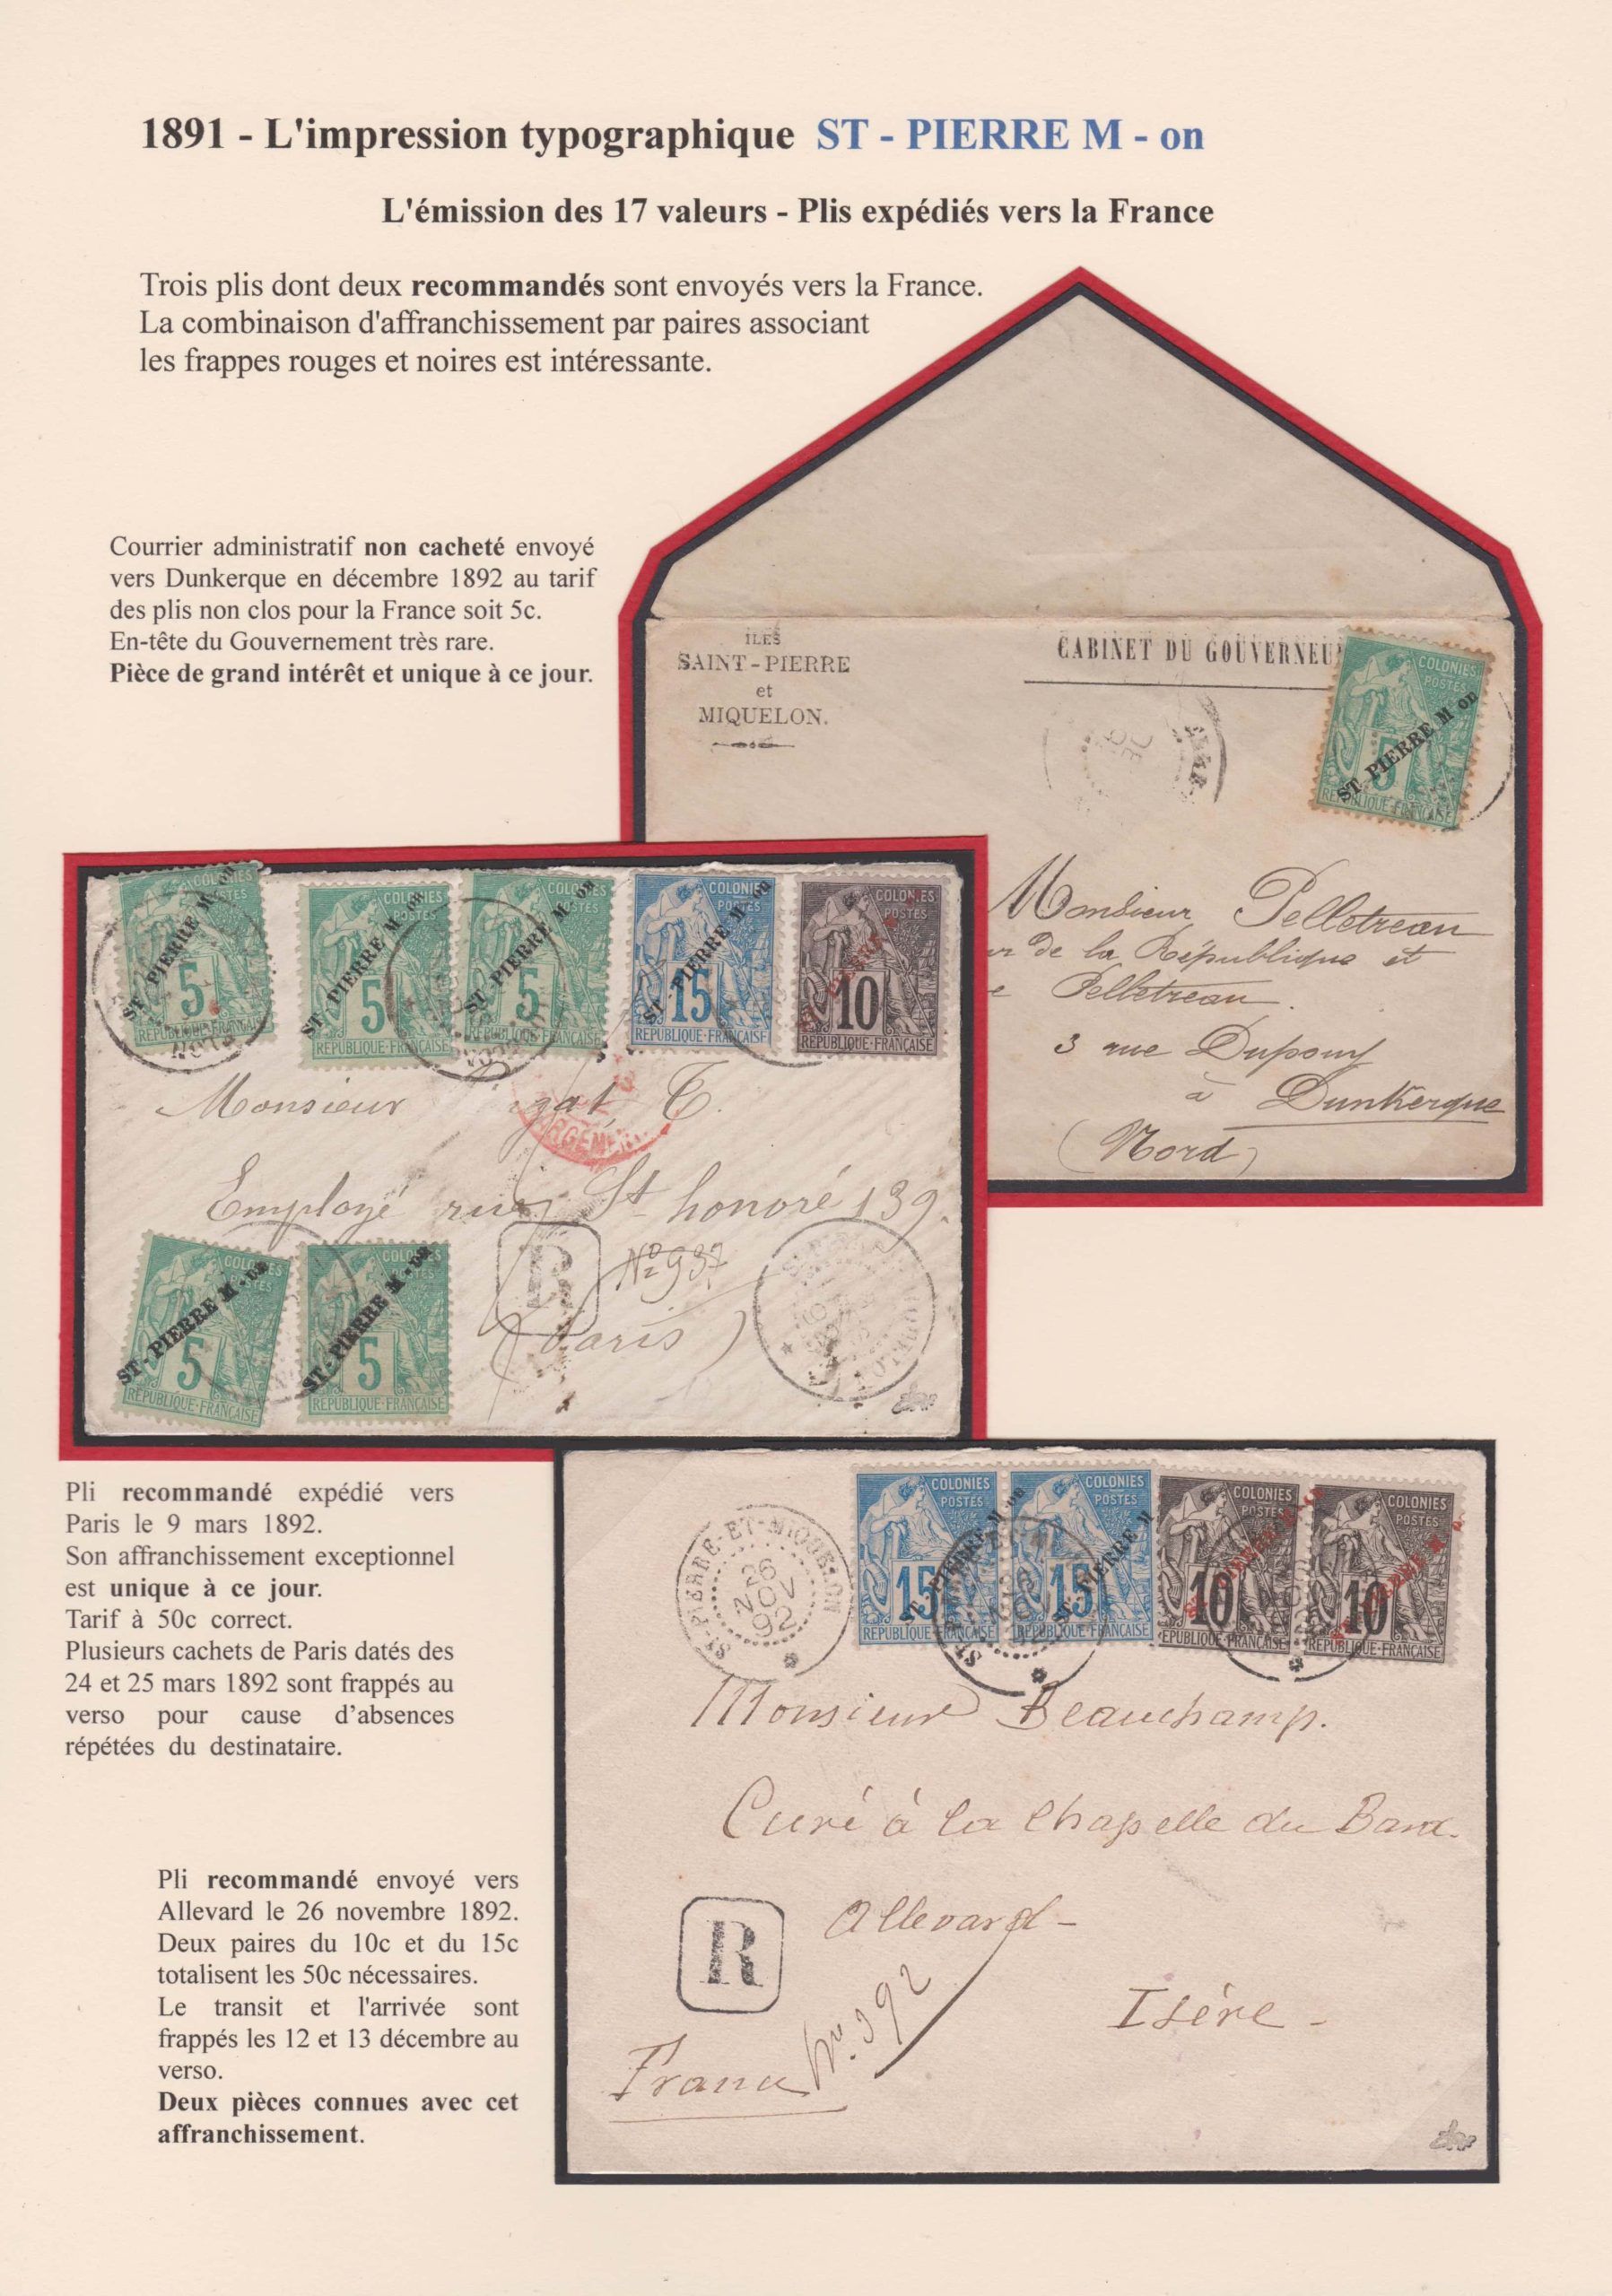 1891 - L'impression typographique ST - PIERRE M - on
L'émission des 17 valeurs - Plis expédiés vers la France
Trois plis dont deux recommandés sont envoyés vers la France.
La combinaison d'affranchissement par paires associant
les frappes rouges et noires est intéressante.
Courrier administratif non cacheté envoyé
vers Dunkerque en décembre 1892 au tarif
des plis non clos pour la France soit 5c.
En-tête du Gouvernement très rare.
Pièce de grand intérêt et unique à ce jour.
ILES
SAINT-PIERRE
et
MIQUELON.
CABINET DU GOUVERNEU
COLONIES
POSTES
5
ST-PIERRE M on
REPUBLIQUE FRANÇAISE
Monsieur Pelletreau
de la République et
Pelletreau
3 rue Dupouy
à Dunkerque
(Nord)
COLONIES
POSTES
ST-PIERRE M on
5
REPUBLIQUE-FRANÇAISE
COLONIES
POSTES
ST-PIERRE M on
5
REPUBLIQUE-FRANÇAISE
COLONIES
POSTES
ST-PIERRE M on
5
REPUBLIQUE-FRANÇAISE
COLONIES
POSTES
ST-PIERRE M on
15
REPUBLIQUE-FRANÇAISE
COLONIES
POSTES
10
REPUBLIQUE-FRANÇAISE
Monsieur
Employé rue St honoré 139.
R No 937
(Paris)
COLONIES
ST-PIERRE M-on
5
REPUBLIQUE-FRANÇAISE
COLONIES
ST-PIERRE M-on
5
REPUBLIQUE-FRANÇAISE
Pli recommandé expédié vers
Paris le 9 mars 1892.
Son affranchissement exceptionnel
est unique à ce jour.
Tarif à 50c correct.
Plusieurs cachets de Paris datés des
24 et 25 mars 1892 sont frappés au
verso pour cause d’absences
répétées du destinataire.
ST-PIERRE-ET-MIQUELON
26
NOV
92
COLONIES
POSTES
ST-PIERRE M on
15
REPUBLIQUE-FRANÇAISE
COLONIES
POSTES
ST-PIERRE M
15
REPUBLIQUE-FRANÇAISE
COLONIES
POSTES
10
EPUBLIQUE-FRANÇAISE
COLONIES
POSTES
10
REPUBLIQUE-FRANÇAISE
Monsieur Beauchamp.
Curé à la Chapelle du Bard.
Allevard -
R
No. 392
Isère -
France
Pli recommandé envoyé vers
Allevard le 26 novembre 1892.
Deux paires du 10c et du 15c
totalisent les 50c nécessaires.
Le transit et l'arrivée sont
frappés les 12 et 13 décembre au
verso.
Deux pièces connues avec cet
affranchissement.